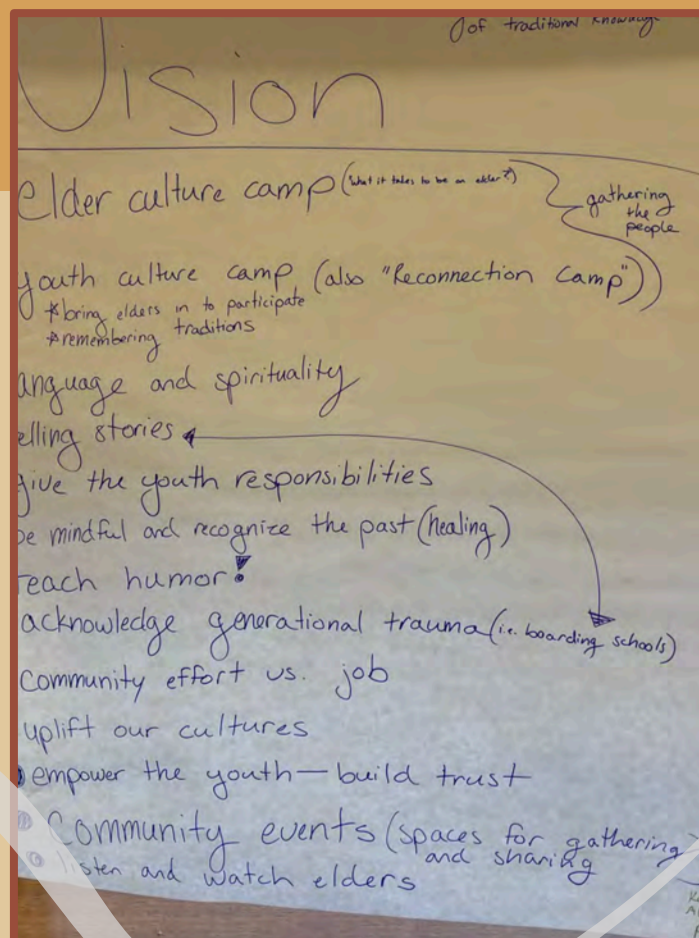 of traditional knowledge
Vision
elder culture camp (what it takes to be an elder?)
gathering
the
people
youth culture camp (also "Reconnection Camp")
*bring elders in to participate
*remembering traditions
anguage and spirituality
elling stories
give the youth responsibilities
be mindful and recognize the past (healing)
teach humor!
acknowledge generational trauma (i.e. boarding schools)
community effort vs. job
uplift our cultures
empower the youth — build trust
Community events (spaces for gathering
and sharing
listen and watch elders